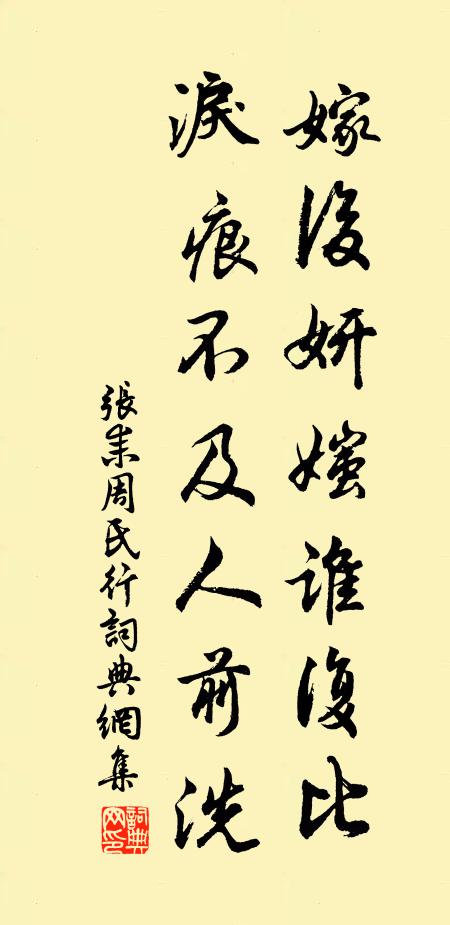 嫁後妍媸誰復比
淚痕不及人前洗
張耒周氏行詞典網集
詞典網印